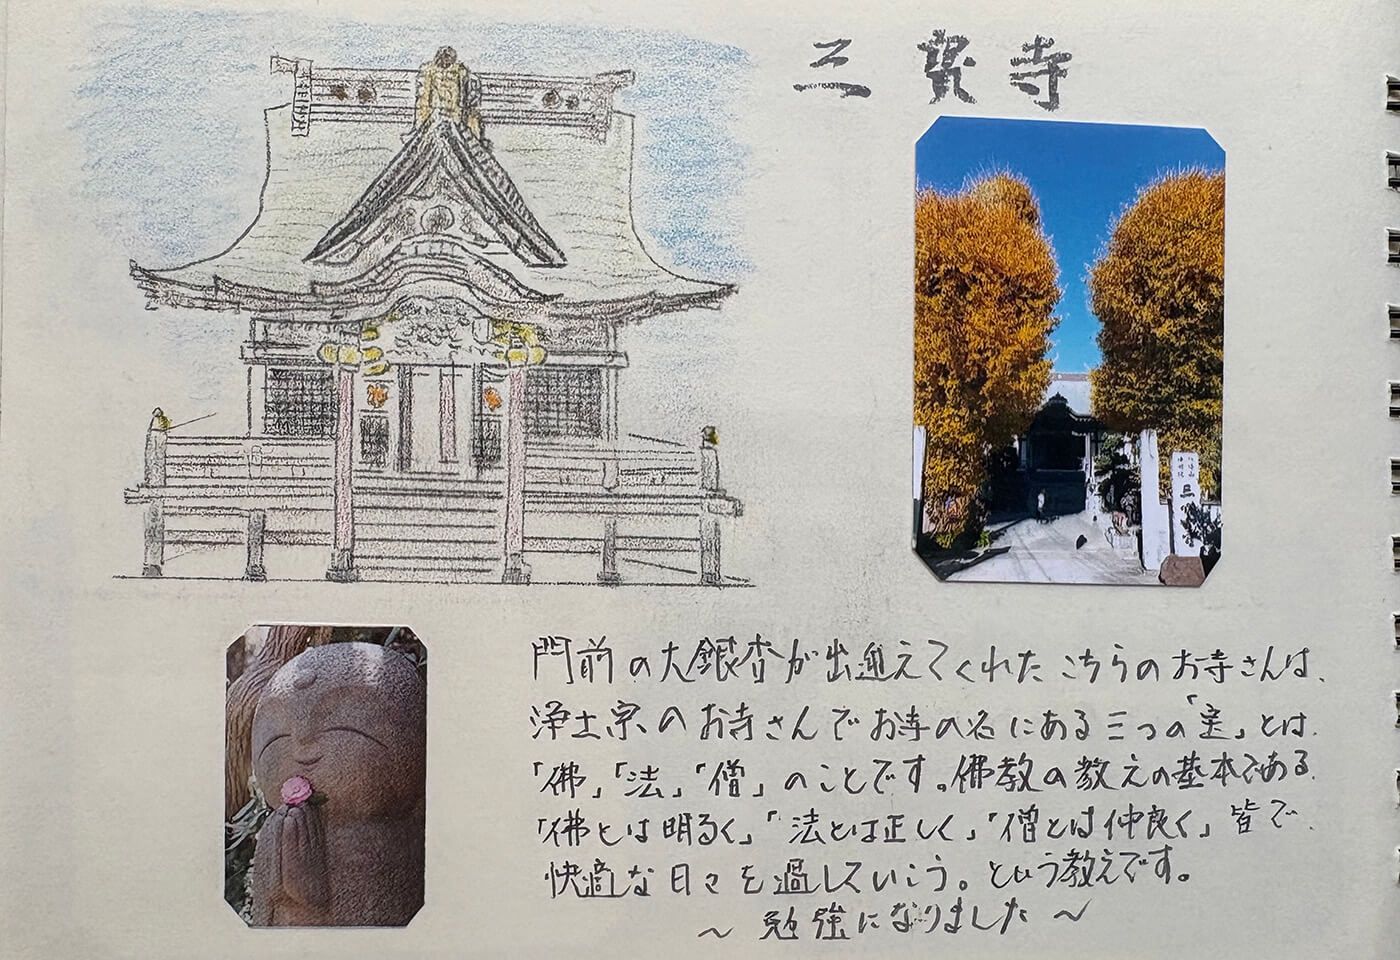 三寳寺
三
門前の大銀杏が出迎えてくれたこちらのお寺さんは、
浄土宗のお寺さんでお寺の名にある三つの「宝」とは、
「佛」「法」「僧」のことです。佛教の教えの基本である、
「佛とは明るく」「法とは正しく」「僧とは仲良く」皆で、
快適な日々を過していこう。という教えです。
～勉強になりました～